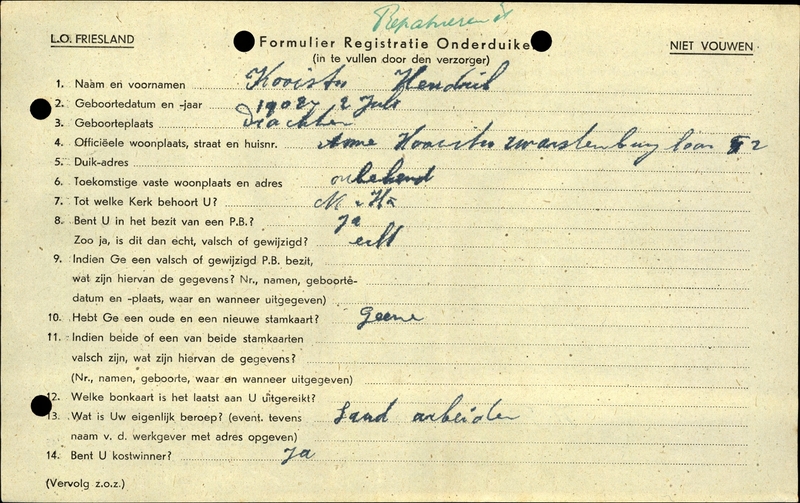 L.O. FRIESLAND
Formulier Registratie Onderduiker
NIET VOUWEN
(in te vullen door den verzorger)
1. Naam en voornamen Kooistra Hendrik
2. Geboortedatum en -jaar 1902 2 Juli
3. Geboorteplaats Drachten
4. Officiëele woonplaats, straat en huisnr.
5. Duik-adres
6. Toekomstige vaste woonplaats en adres onbekend
7. Tot welke Kerk behoort U? N. H.
8. Bent U in het bezit van een P.B.? Ja
Zoo ja, is dit dan echt, valsch of gewijzigd? echt
9. Indien Ge een valsch of gewijzigd P.B. bezit,
wat zijn hiervan de gegevens? Nr., namen, geboorte-
datum en -plaats, waar en wanneer uitgegeven)
10. Hebt Ge een oude en een nieuwe stamkaart? Geene
11. Indien beide of een van beide stamkaarten
valsch zijn, wat zijn hiervan de gegevens?
(Nr., namen, geboorte, waar en wanneer uitgegeven)
12. Welke bonkaart is het laatst aan U uitgereikt?
13. Wat is Uw eigenlijk beroep? (event. tevens Land arbeider
naam v. d. werkgever met adres opgeven)
14. Bent U kostwinner? Ja
(Vervolg z.o.z.)